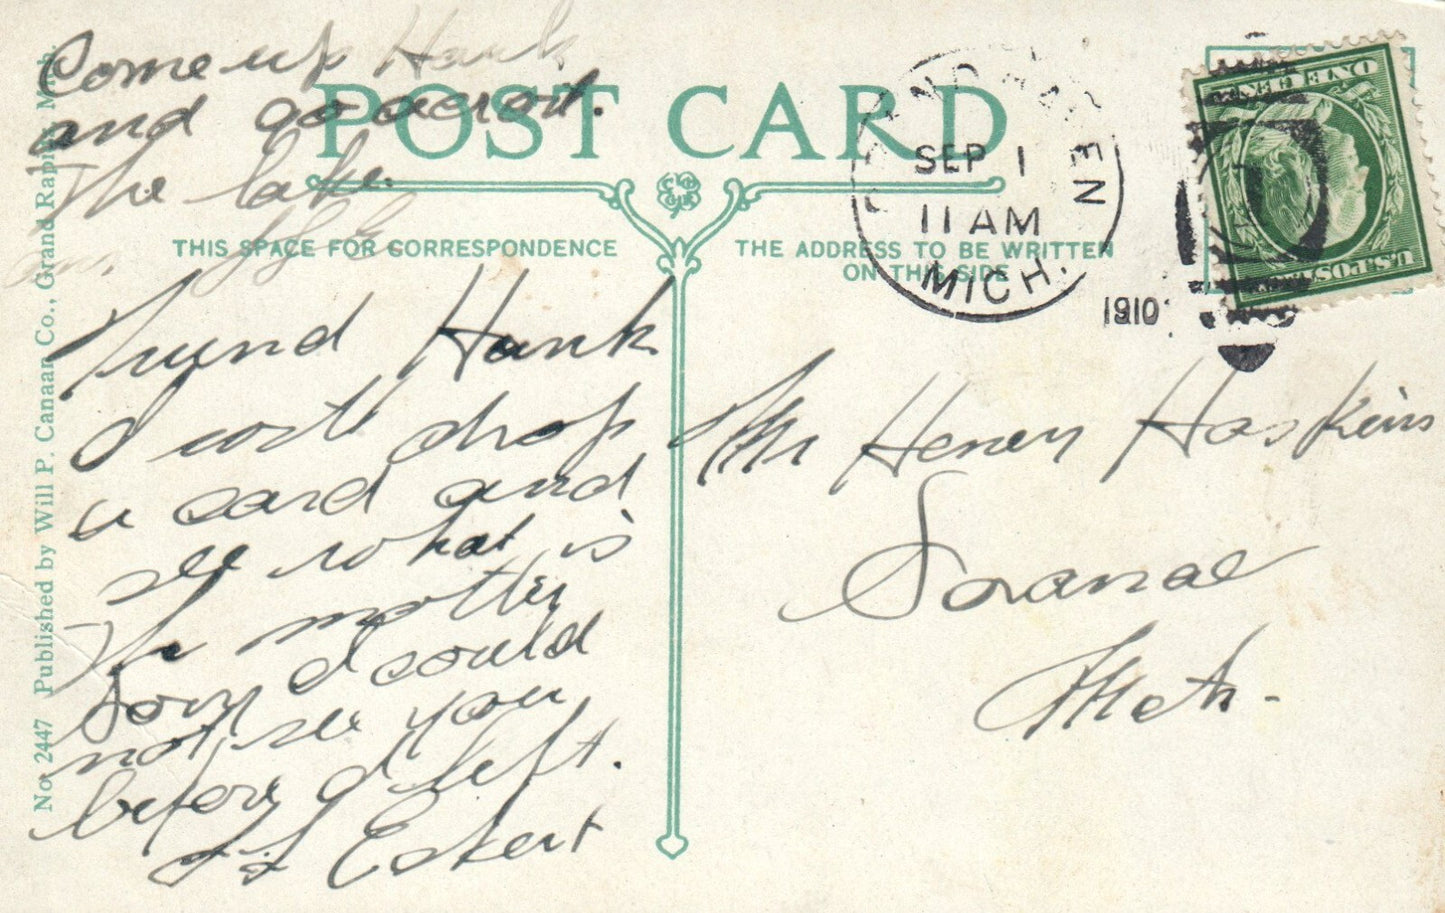 Come up Hank
and go acrost.
The lake.
POST CARD
THIS SPACE FOR CORRESPONDENCE
THE ADDRESS TO BE WRITTEN
ON THIS SIDE
GRAND HAVEN
SEP 1
11 AM
MICH.
1910
ONE CENT
U.S. POSTAGE
Friend Hank
I will drop
a card and
see what is
the mattey
Sory I could
not see you
before I left.
Eckert
Mr Henry Haskins
Saranac
Mich-
No. 2447 Published by Will P. Canaan Co., Grand Rapids, Mich.